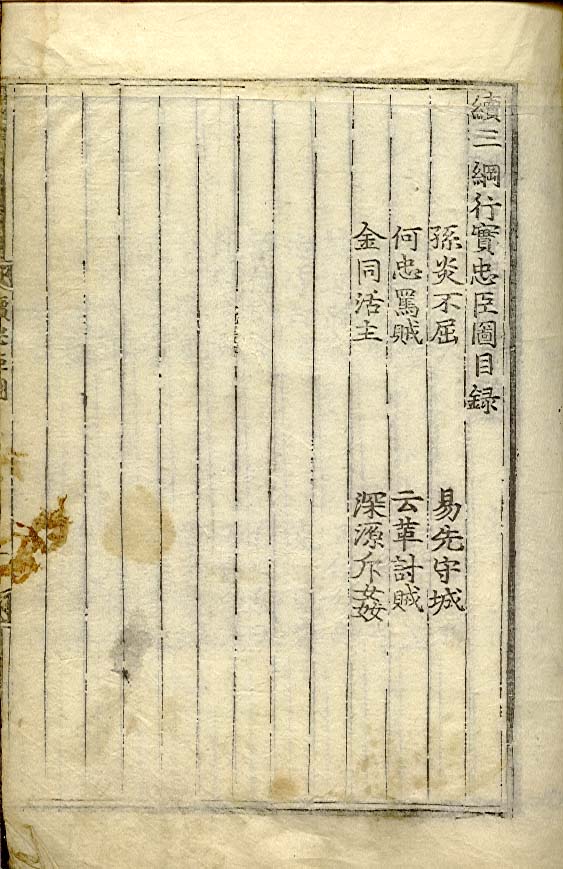 續三綱行實忠臣圖目録
孫炎不屈 易先守城
何忠罵賊 云革討賊
金同活主 深源斥姦
續忠臣圖